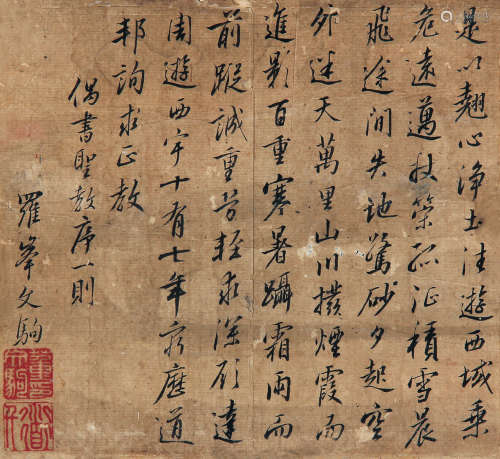 是以翹心淨土法遊西域乘
危遠邁杖策孤征積雪晨
飛途間失地驚砂夕起空
外迷天萬里山川撥煙霞而
進影百重寒暑躡霜雨而
前蹤誠重勞輕求深願達
周遊西宇十有七年窮歷道
邦詢求正教
偶書聖教序一則
羅峯文驄